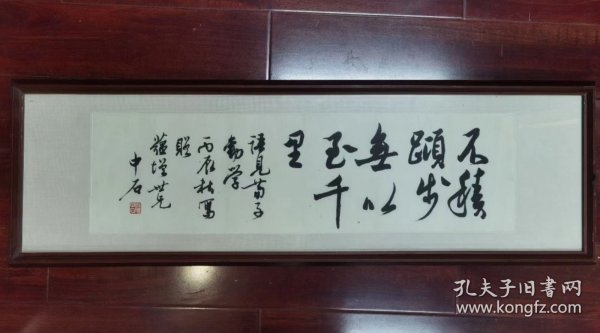 不積
蹞步
無以
至千
里
語見荀子
勸学
丙辰秋写
贈
蕴增世兄
中石
孔夫子旧书网
www.kongfz.com